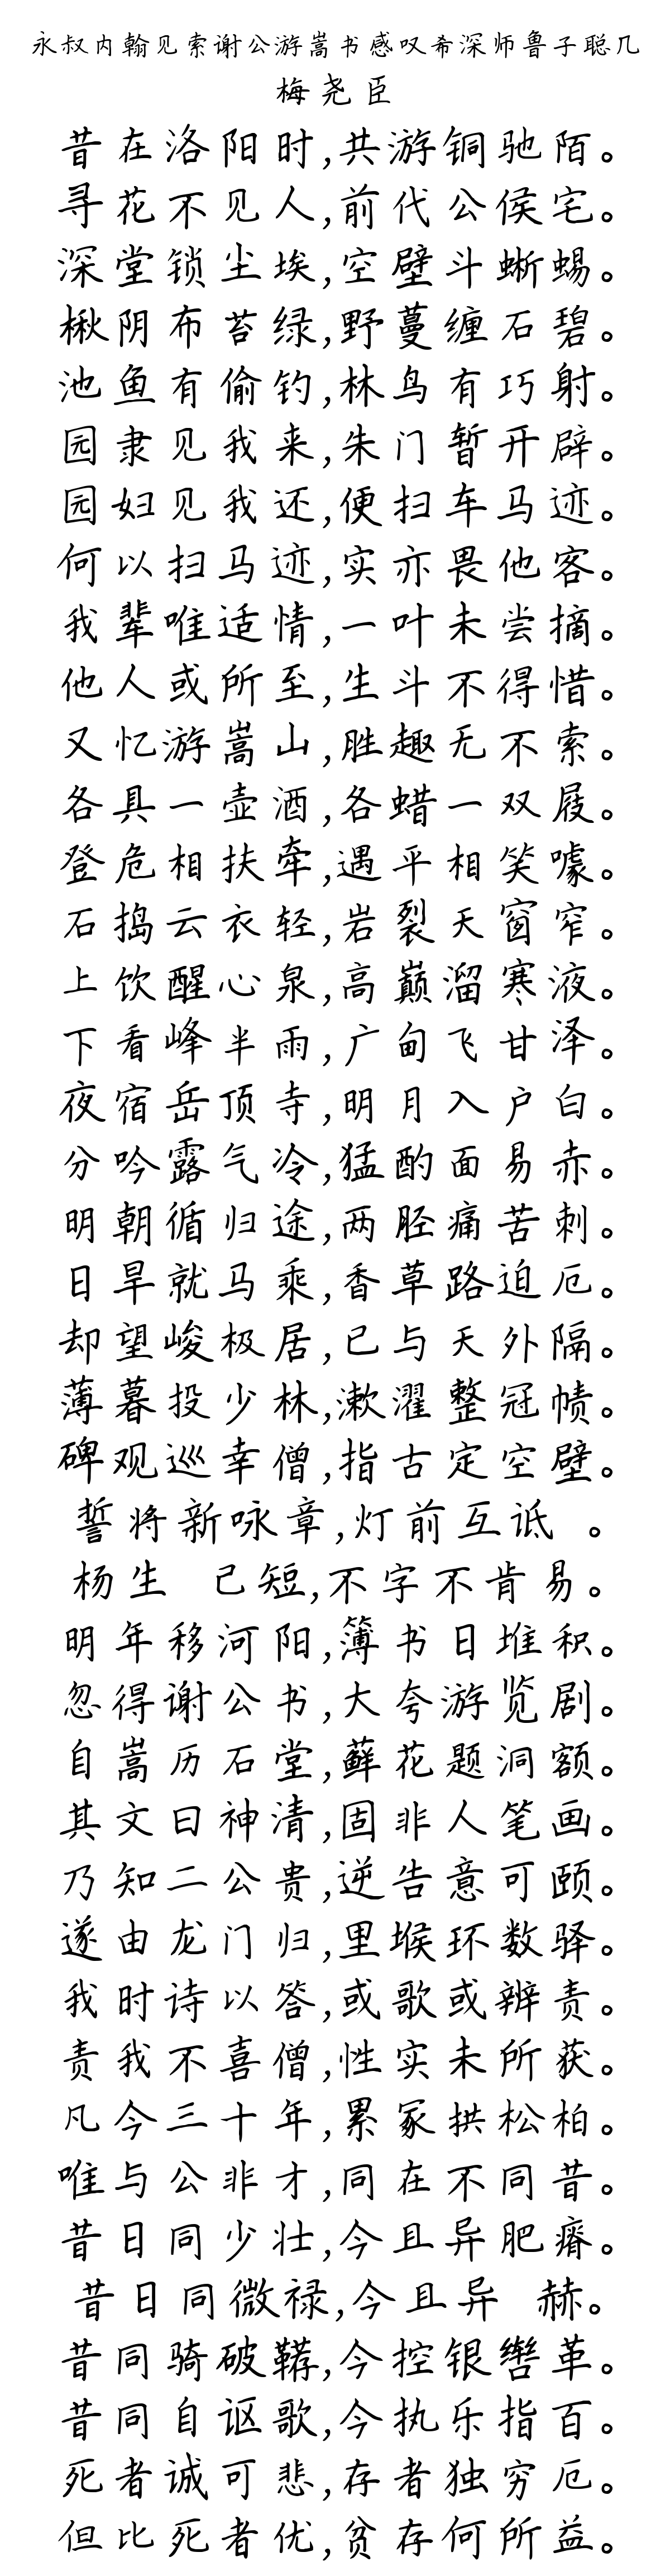 永叔内翰见索谢公游嵩书感叹希深师鲁子聪几
梅尧臣
昔在洛阳时,共游铜驰陌。
寻花不见人,前代公侯宅。
深堂锁尘埃,空壁斗蜥蜴。
楸阴布苔绿,野蔓缠石碧。
池鱼有偷钓,林鸟有巧射。
园隶见我来,朱门暂开辟。
园妇见我还,便扫车马迹。
何以扫马迹,实亦畏他客。
我辈唯适情,一叶未尝摘。
他人或所至,生斗不得惜。
又忆游嵩山,胜趣无不索。
各具一壶酒,各蜡一双屐。
登危相扶牵,遇平相笑噱。
石捣云衣轻,岩裂天窗窄。
上饮醒心泉,高巅溜寒液。
下看峰半雨,广甸飞甘泽。
夜宿岳顶寺,明月入户白。
分吟露气冷,猛酌面易赤。
明朝循归途,两胫痛苦刺。
日旱就马乘,香草路迫厄。
却望峻极居,已与天外隔。
薄暮投少林,漱濯整冠帻。
碑观巡幸僧,指古定空壁。
誓将新咏章,灯前互诋 。
杨生 已短,不字不肯易。
明年移河阳,簿书日堆积。
忽得谢公书,大夸游览剧。
自嵩历石堂,藓花题洞额。
其文曰神清,固非人笔画。
乃知二公贵,逆告意可颐。
遂由龙门归,里堠环数驿。
我时诗以答,或歌或辨责。
责我不喜僧,性实未所获。
凡今三十年,累冢拱松柏。
唯与公非才,同在不同昔。
昔日同少壮,今且异肥瘠。
昔日同微禄,今且异 赫。
昔同骑破鞯,今控银辔革。
昔同自讴歌,今执乐指百。
死者诚可悲,存者独穷厄。
但比死者优,贫存何所益。